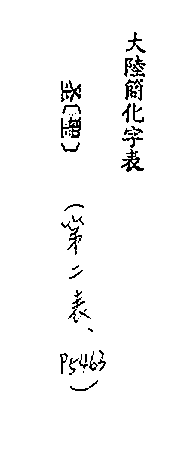 大陸簡化字表
(第二表、P5463)